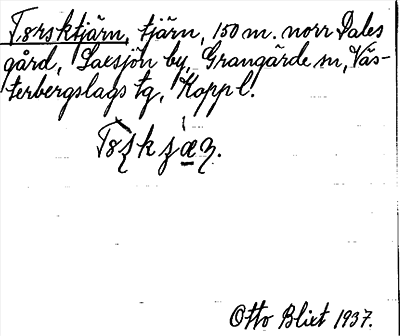 Torsktjärn, tjärn, 150 m. norr Dales
gård, Laxsjön by, Grangärde sn, Väs-
terbergslags tg, Kopp l.
Otto Blixt 1937.